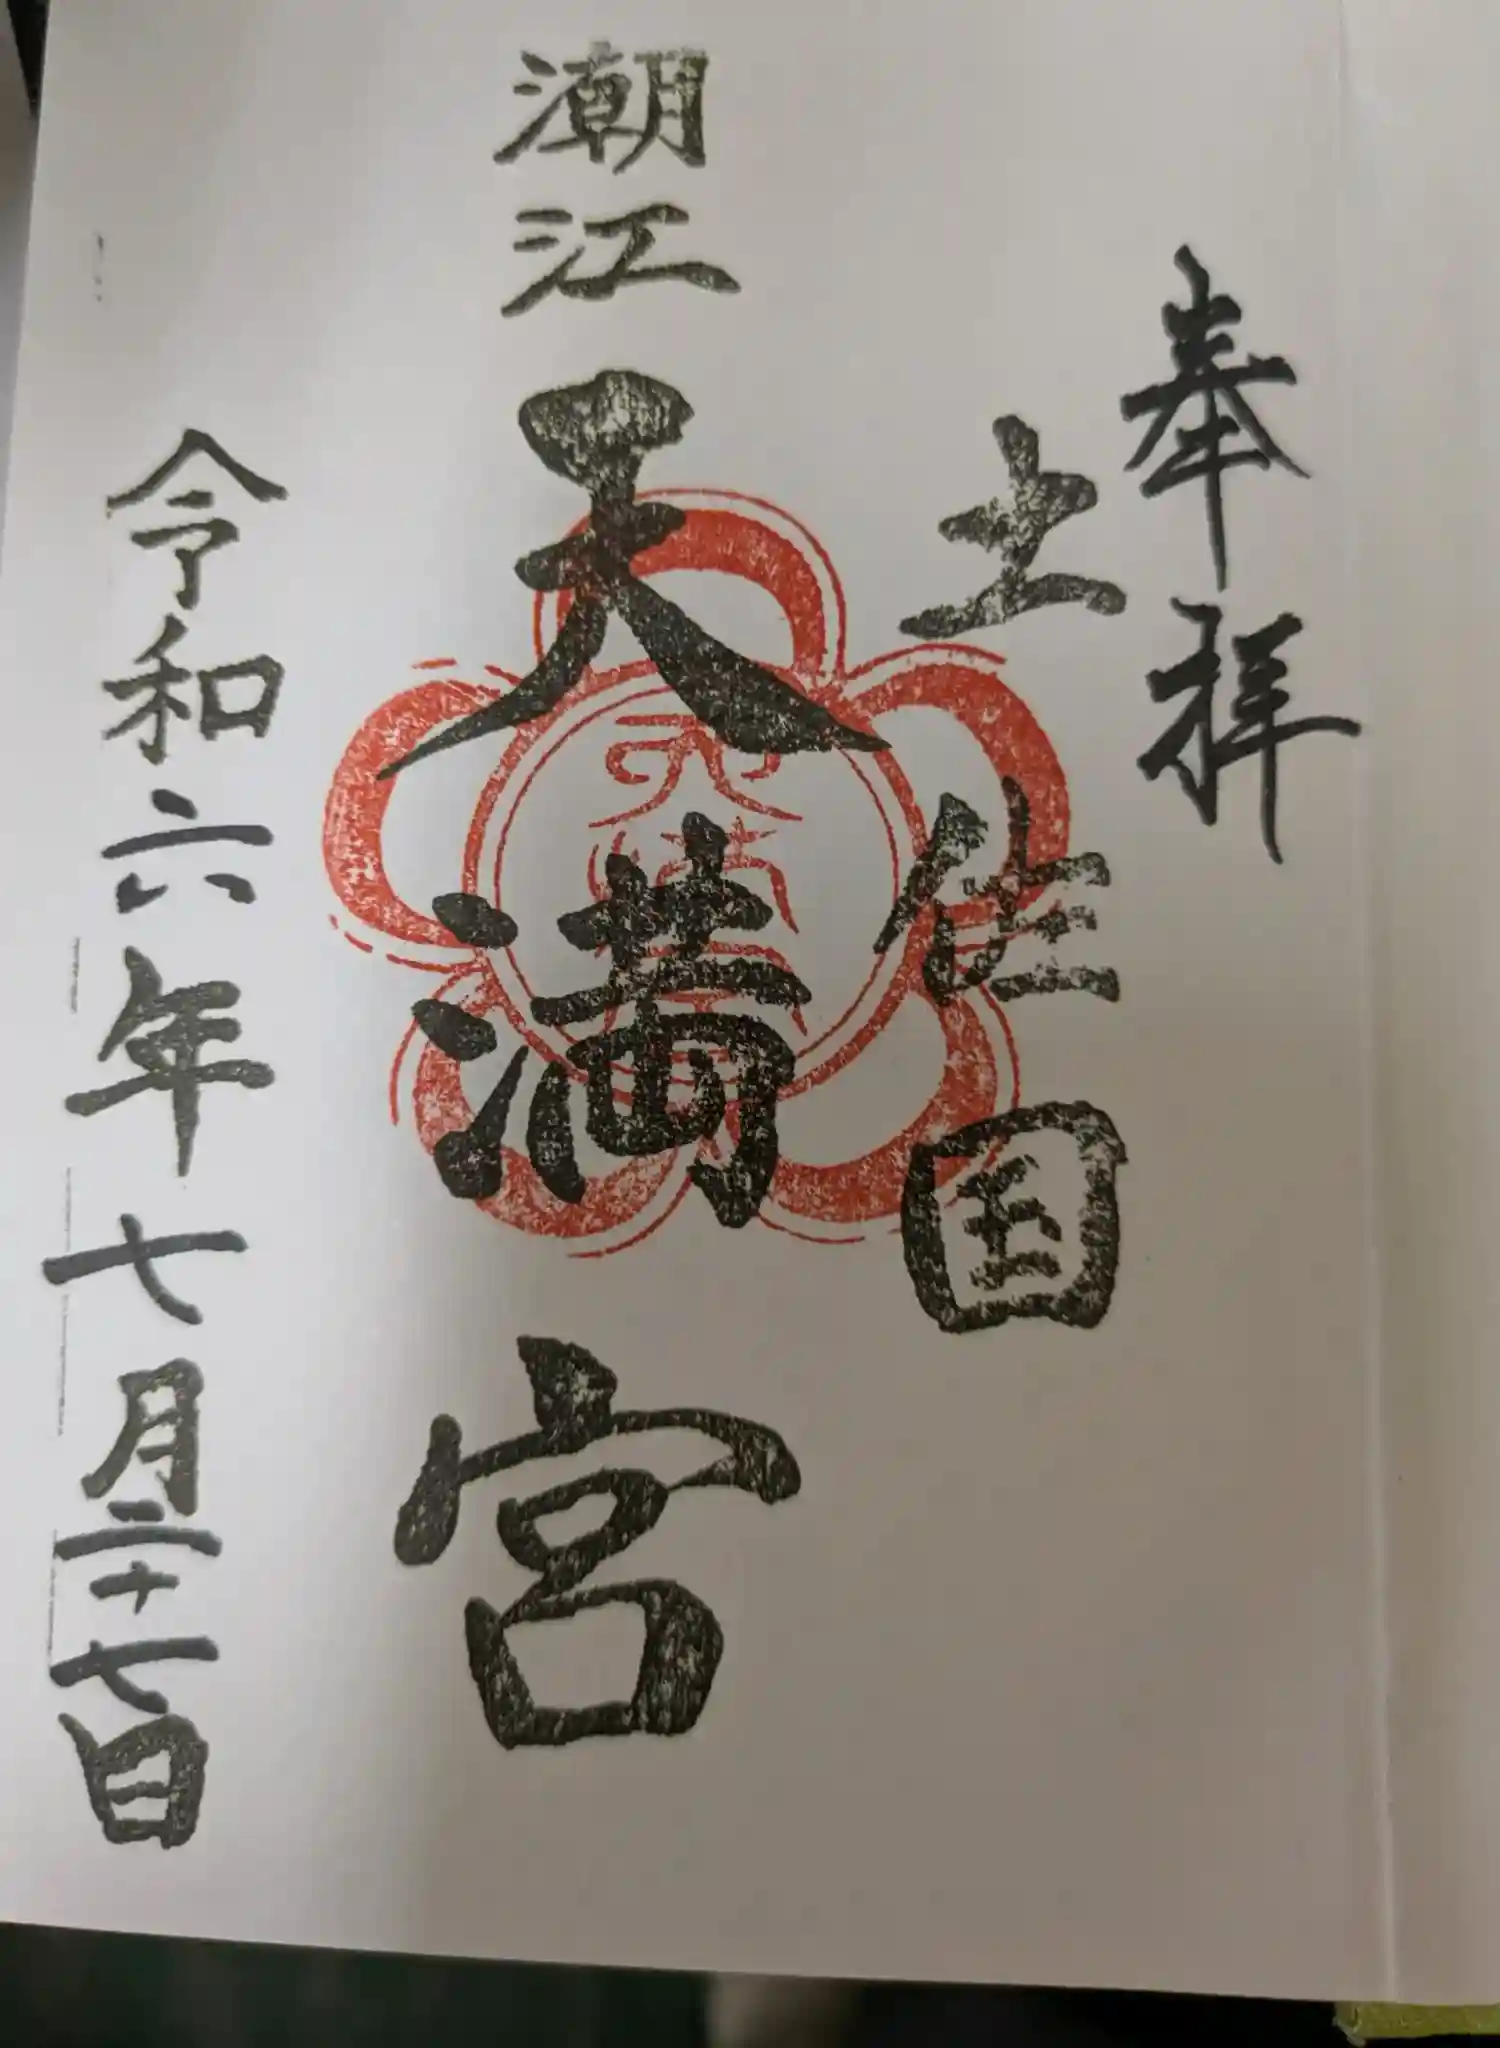 奉拝
土佐国
潮江天満宮
令和六年七月二十七日